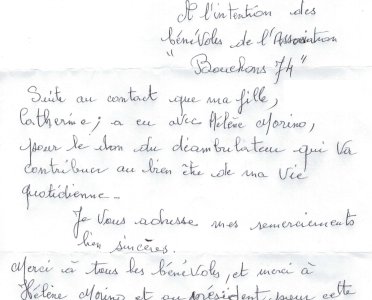 A l'intention des
bénévoles de l'Association
"Bouchons 74"
Suite au contact que ma fille,
Catherine; a eu avec Hélène Morino,
pour le don du déambulateur qui va
contribuer au bien être de ma vie
quotidienne -
Je vous adresse mes remerciements
bien sincères.
Merci à tous les bénévoles, et merci à
Hélène Morino et au président pour cette